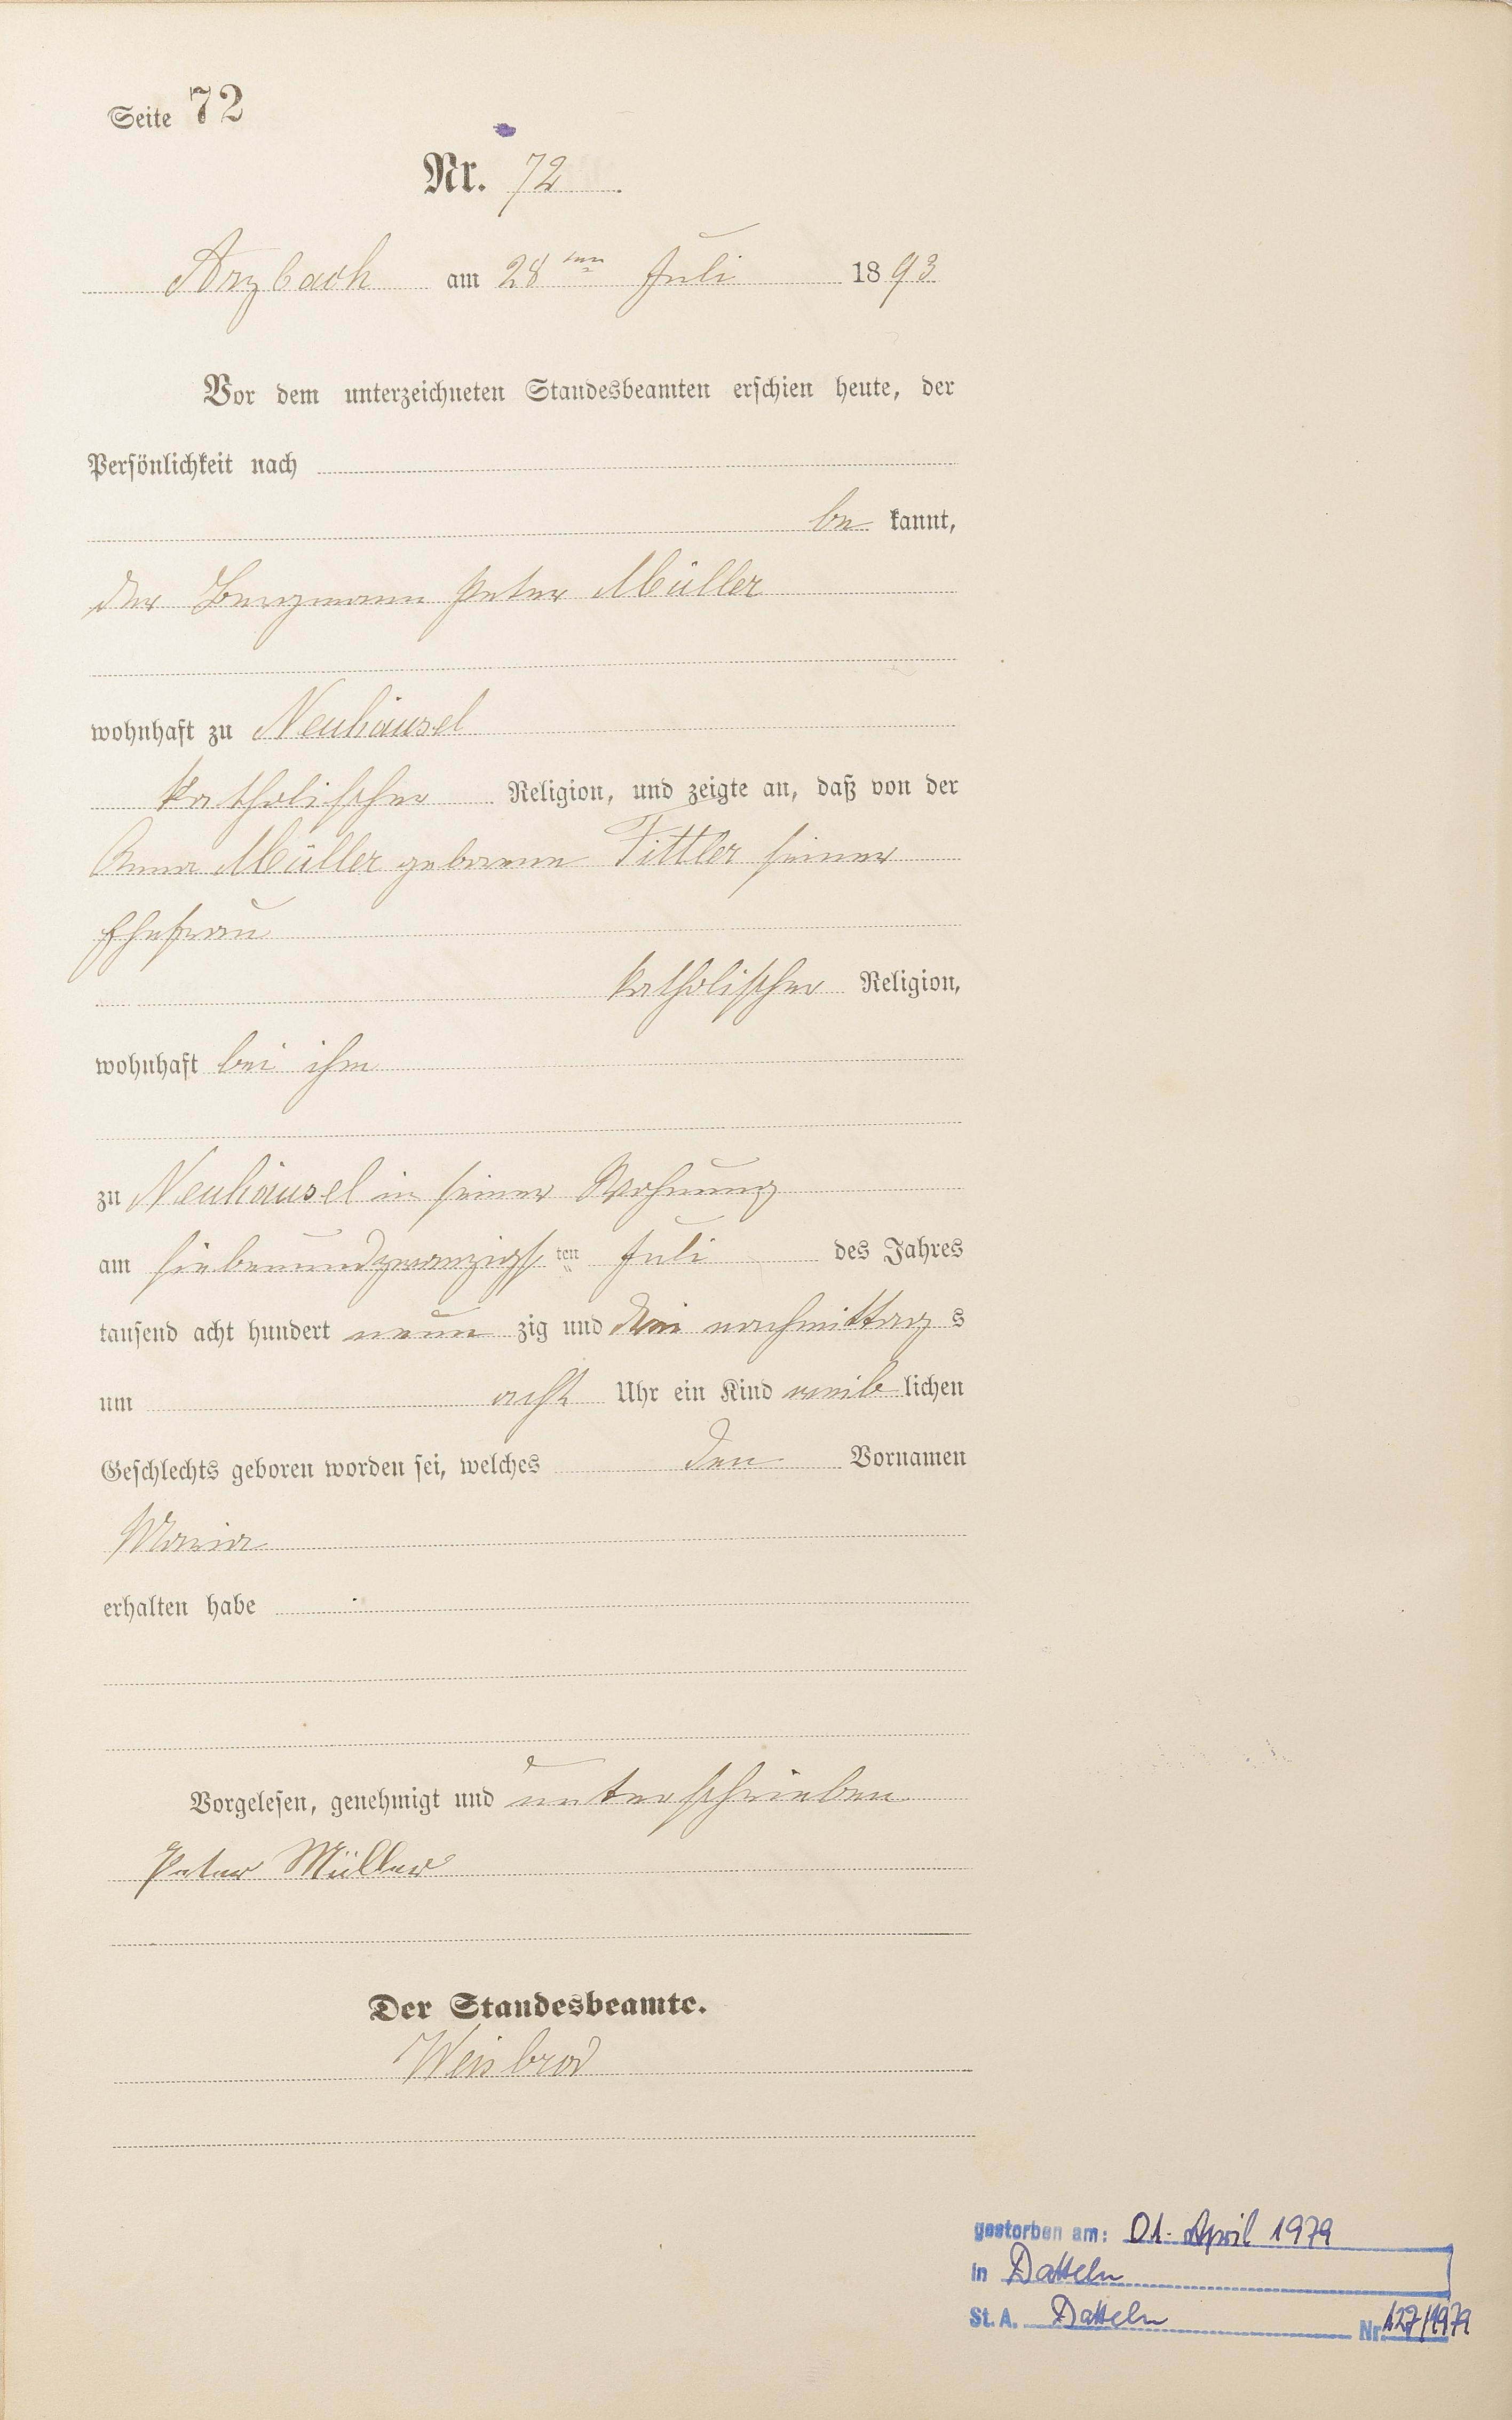 Seite 72
Nr. 72.
Arzbach am 28ten Juli 1893
Vor dem unterzeichneten Standesbeamten erschien heute, der
Persönlichkeit nach
be kannt,
der Bergmann Peter Müller
wohnhaft zu Neuhäusel
katholischer Religion, und zeigte an, daß von der
Anna Müller geborene Fittler seiner
Ehefrau
katholischer Religion,
wohnhaft bei ihm
zu Neuhäusel in seiner Wohnung
am siebenundzwanzigsten Juli des Jahres
tausend acht hundert neunzig und drei nachmittags
um acht Uhr ein Kind weiblichen
Geschlechts geboren worden sei, welches den Vornamen
Maria
erhalten habe
Vorgelesen, genehmigt und unterschrieben
Peter Müller
Der Standesbeamte.
Weisbrod
gestorben am: 01. April 1979
in Datteln
St. A. Datteln Nr. 127/1979